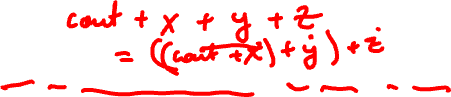 cout + x + y + z
= ((cout + x) + y) + z